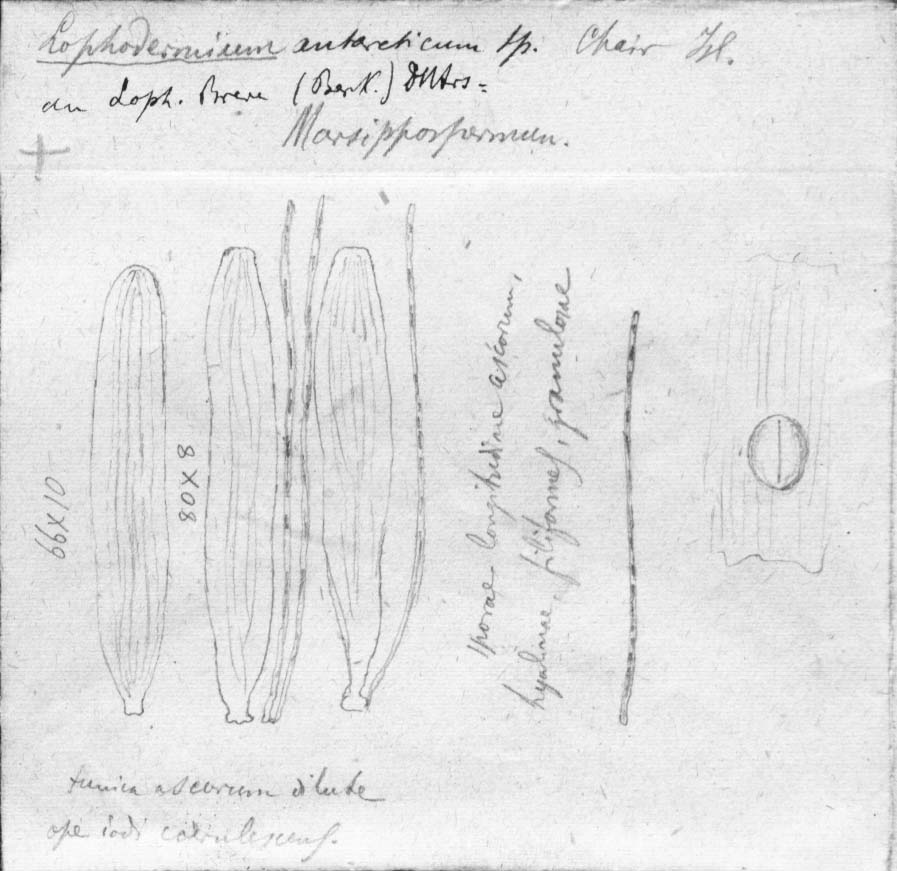 Lophodermium antarcticum sp. Chair Isl.
an Loph. breve (Berk.) DNtrs=
Marsippospermum.
66X10
80X8
sporae longitudine ascorum,
hyalinae, filiformes, granulosae
tunica ascorum dilute
ope iodi coerulescens.